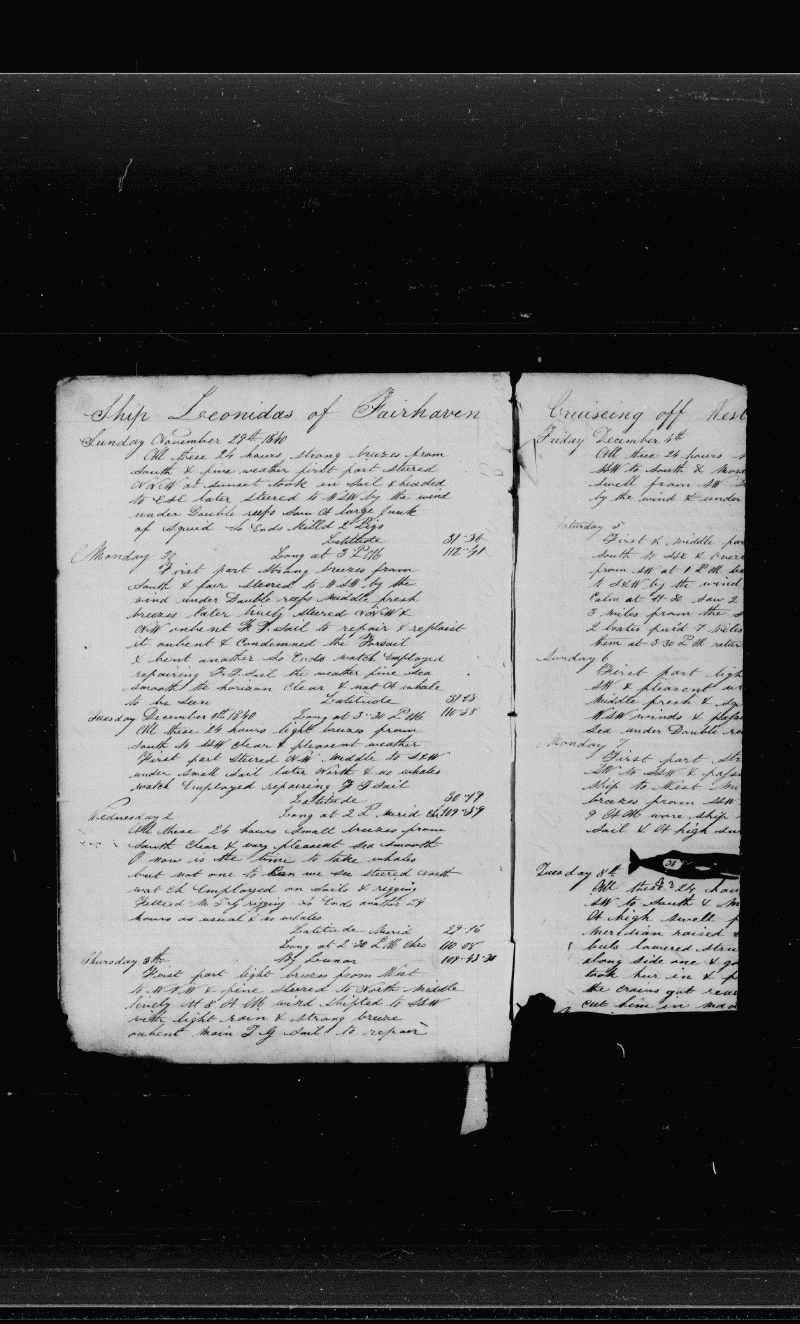 Ship Leonidas of Fairhaven
Sunday November 29th 1840
All these 24 hours strong breezes from
South & fine weather first part steered
NNW at sunset took in sail & hedded
to ESE later steered to WSW by the wind
under Double reefs Saw A large Junk
of Squid So Ends Killd 2 Pigs
Latitude 31-36
Monday 30 Long at 3 PM 112-41
First part Strong breezes from
South & fair steered to WSW by the
wind under Double reefs Middle fresh
breezes later lively steered NNW &
NW onbent F.T. Sail to repair & replaist
it onbent & Condemned the Forsail
& bent another So Ends watch Employed
repairing F.T. Sail the weather fine Sea
Smooth the horison Clear & not A whale
to be seen Latitude 31-28
Tuesday December 1th 1840 Long at 3-30 PM 110-58
All these 24 hours light breezes from
South to SSW Clear & pleasent weather
First part Steered NW Middle to SSW
under Small Sail later North & no whales
watch Employed repairing F T Sail
Latitude 30-19
Wednesday 2 Long at 2 P Merid Chr 109-59
All these 24 hours Small breezes from
South Clear & vary pleasent Sea Smooth
O now is the time to take whales
but not one to Can we see steered North
wat ch Employed on Sails & rigging
M T G rigging So Ends another 24
hours as usual & no whales
Latitude Merid 29-16
Long at 2-30 PM Chro 110-08
Thursday 3th By Lunar 109-43-30
First part light breezes from West
to WNW & fine steered to North Middle
lively At 3 A M wind shifted to SSW
with light rain & strong breeze
onbent Main T G Sail to repair
Cruiseing off West
Friday December 4th
All these 24 hours
SSW to South & Most
Swell from SW
by the wind & under
Saturday 5
First & Middle par
South to SSE & over
from SW at 1 PM
to SSW by the wind
Calm at 11-30 Saw 2
3 miles from the S
2 boates 7 Miles
them at 3-30 PM retur
Sunday 6
First part ligh
SW & pleasent
Middle fresh &
WSW winds &
Sea under Double re
Monday 7
First part Str
SW to SSW &
Ship to West
breezes from SSW
9 A M wore ship
Sail & A high
Tuesday 8th
All these 24 hour
SW to South &
A high Swell
Meridian raised
buls lowered Stru
along side one &
took her in &
the crains got
cut him in